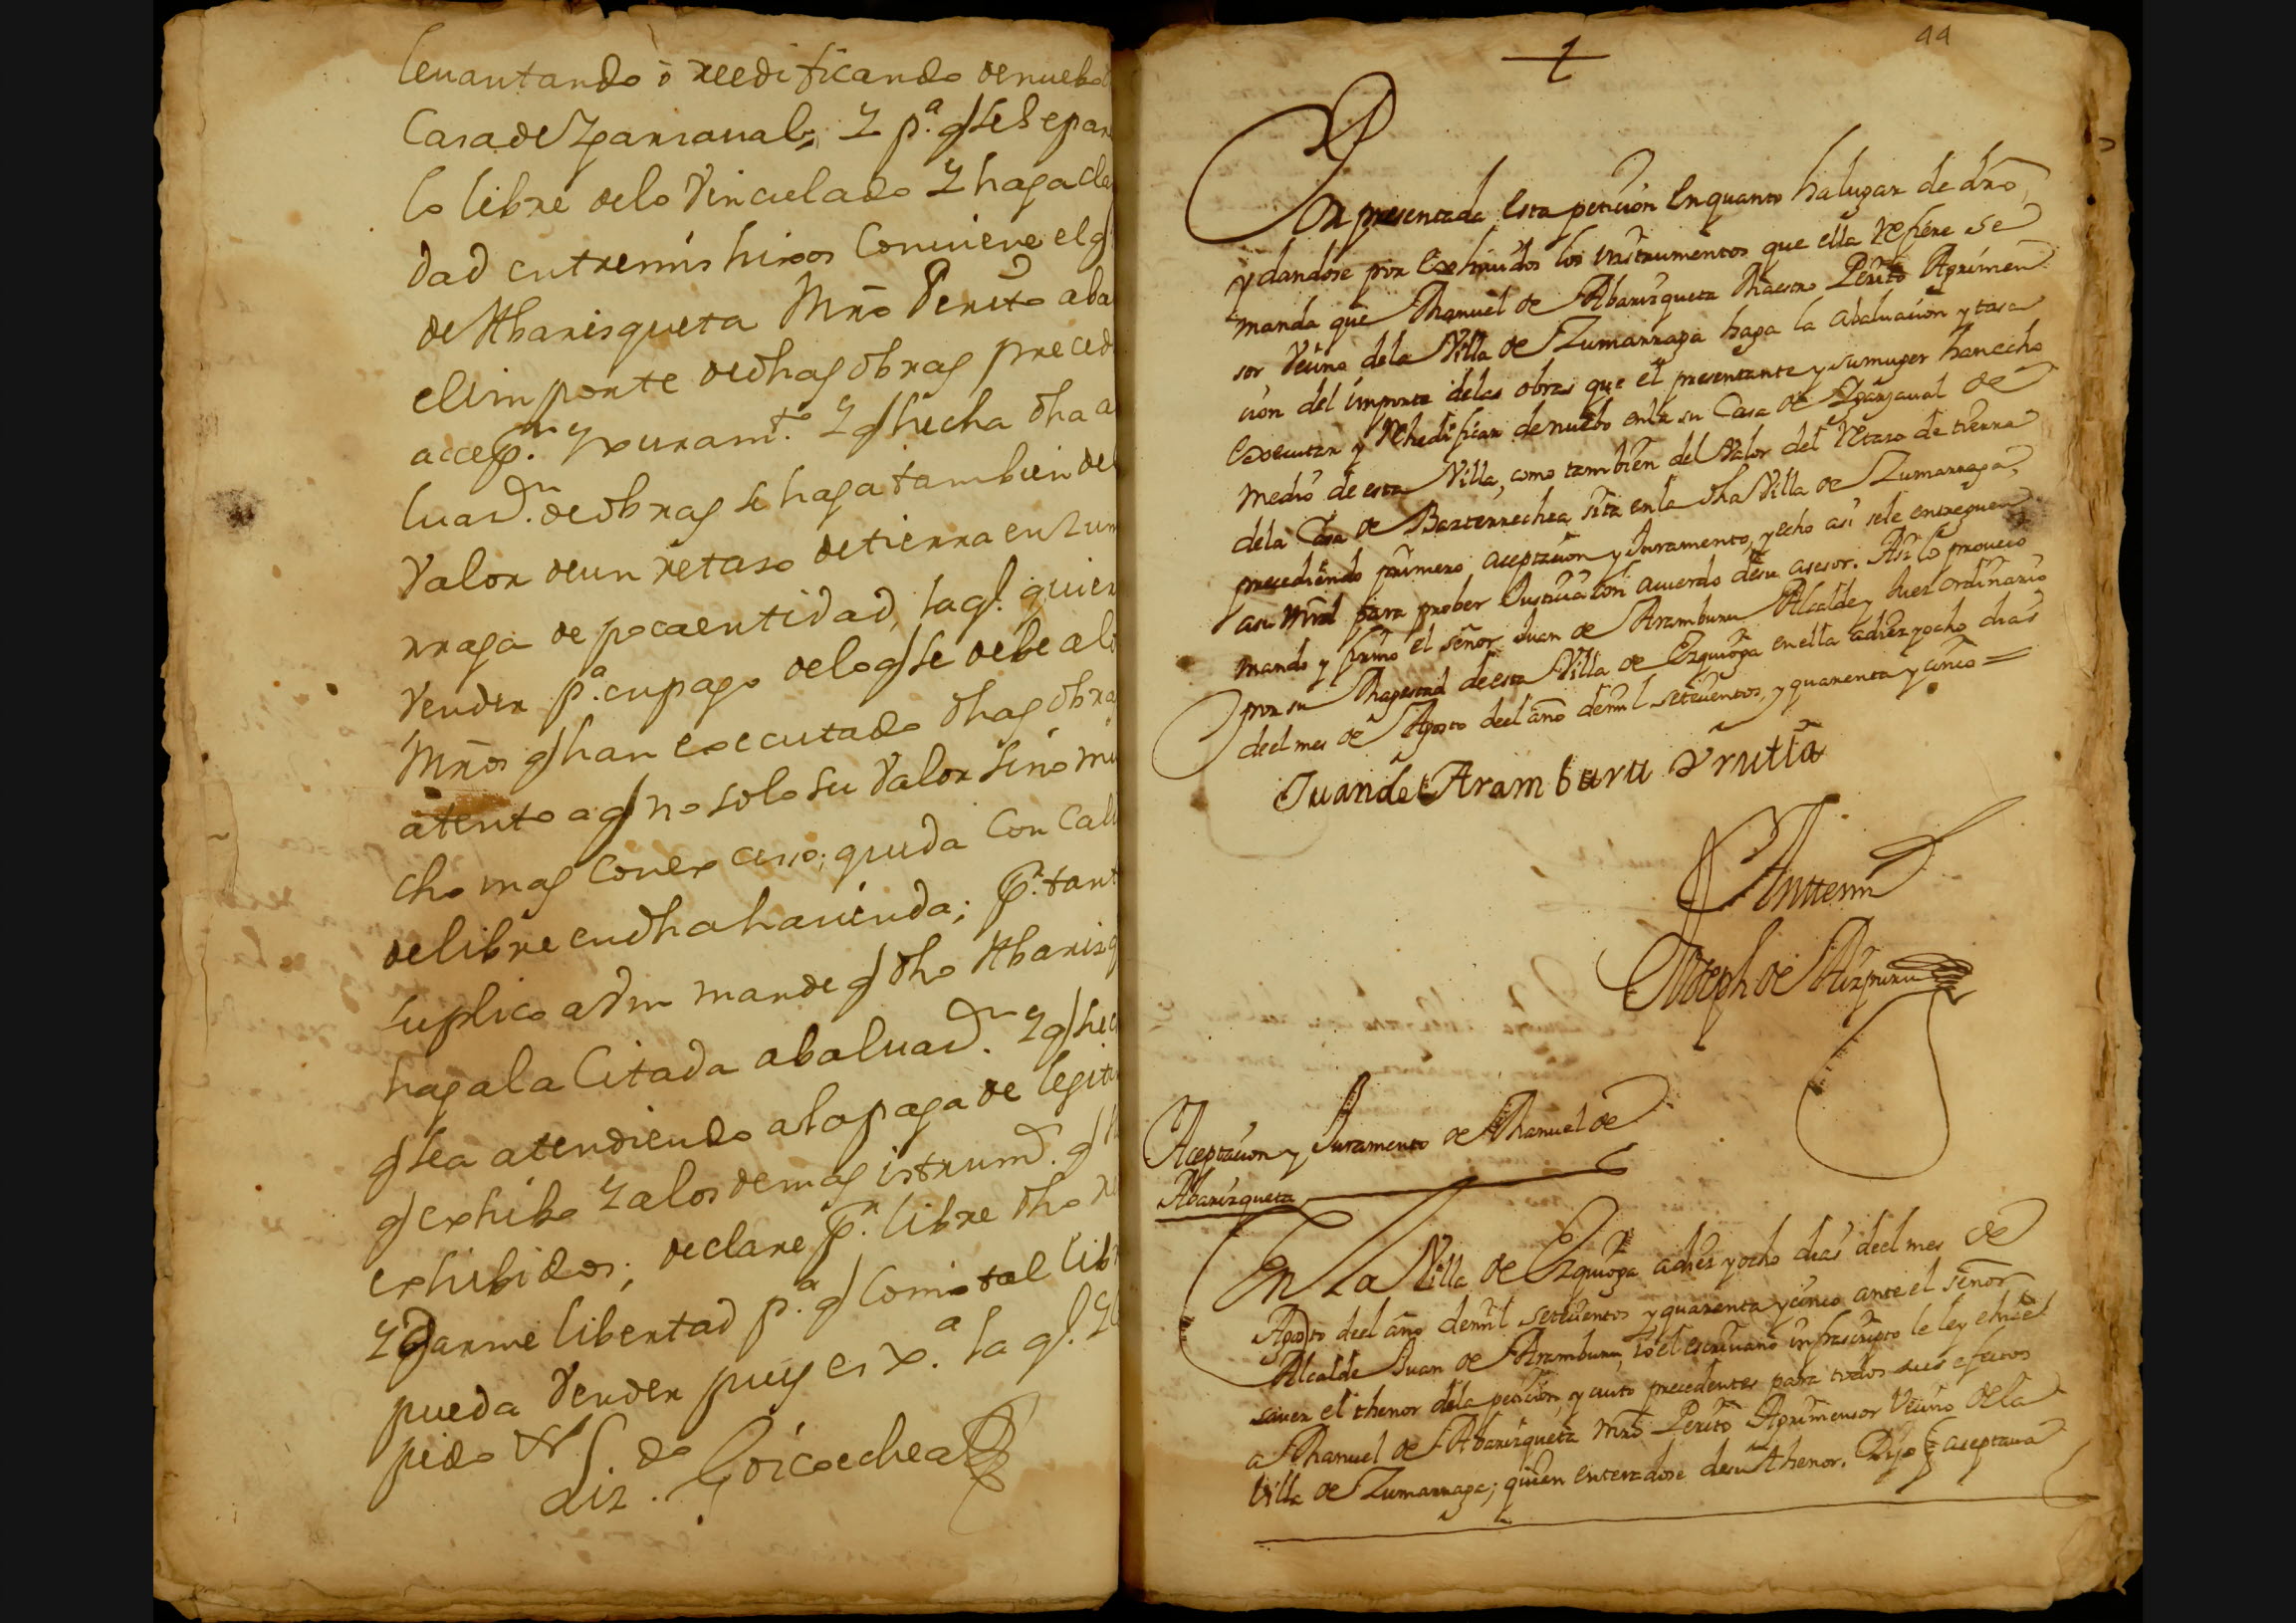 leuantando o reedificando de nuebo
Casa de Yparraual; y p.ª q̃ se separ
lo libre de lo Vinculado y haga cla
dad entre mis hixos Conuiene el q̃
de Abarisqueta Mr̃o Perito aba
el importe de dhas obras preced
accep.n y xuram.to y q̃ hecha dha a
luaz.n de obras se haga tambien de
Valor de un retaso de tierra en Zum
rraga de poca entidad, la ql. quier
Vender p.ª cu pago de lo q̃ se debe a lo
Mr̃os q̃ han executado dhas obra
atento a q̃ no solo su Valor sino mu
cho mas con exceso; queda con Cali
de libre en dha hazienda; p.r tant
suplico a Vm mande q̃ dho Abarisq
haga la Citada abaluaz.n y q̃ hec
q̃ sea atendiendo a la paga de legiti
q̃ exhibo y a los demas istrum.s q̃
exhibidos; declare p.r libre dho re
y darme libertad p.ª q̃ Como tal lib
pueda Vender pues es x.ª la ql.
pido &
Liz.do Goicoechea
44
Por presentada esta peticion en quanto ha lugar de dr̃o,
y dandose por Exhiuidos los instrumentos que ella refiere se
manda que Manuel de Abarizqueta Maestro Perito Agrimen
sor Vecino de la Villa de Zumarraga haga la abaluacion y tasa
cion del importe de las obras que el presentante y su muger han echo
Executar y Rehedificar de nuebo en la su Casa de Yparraual de
medio de esta Villa, como tambien del Valor del Retaso de tierra
de la Casa de Bazterrechea sita en la dha Villa de Zumarraga,
precediendo primero aceptacion y Juramento, y echo asi se le entreguen
a su mrd para prober Justicia con acuerdo de su asesor. Asi lo proueio
mando y firmo el señor Juan de Aramburu Alcalde y Juez ordinario
por su Magestad de esta Villa de Ezquioga en ella a diez y ocho dias
de el mes de Agosto de el año de mil setecientos, y quarenta y cinco =
Juan de Aramburu Vrrutia
Antemi
Joseph de Aizpuru
Aceptacion y Juramento de Manuel de
Abarizqueta
En La Villa de Ezquioga a diez y ocho dias de el mes de
Agosto de el año de mil setecientos y quarenta y cinco ante el señor
Alcalde Juan de Aramburu, yo el escriuano infrascripto le ley e hice
sauer el thenor de la peticion, y auto precedentes para todos sus efectos
a Manuel de Abarizqueta Mr̃o Perito Agrimensor Vecino de la
Villa de Zumarraga; quien enteradose de su thenor. Dijo q̃ aceptaua